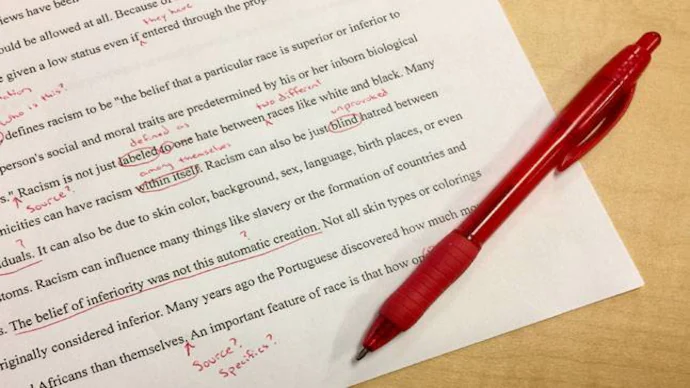 iews have been
ould be allowed at all. Because o
they have
e given a low status even if entered through the prop
who is this?
defines racism to be "the belief that a particular race is superior or inferior to
person's social and moral traits are predetermined by his or her inborn biological
two different
s." Racism is not just labeled to one hate between races like white and black. Many
Source?
defined as
unprovoked
nicities can have racism within itself. Racism can also be just blind hatred between
among themselves
duals. It can also be due to skin color, background, sex, language, birth places, or even
?
stoms. Racism can influence many things like slavery or the formation of countries and
?
s. The belief of inferiority was not this automatic creation. Not all skin types or colorings
riginally considered inferior. Many years ago the Portuguese discovered how much mo
d Africans than themselves. An important feature of race is that how o
Source?
Specifics?